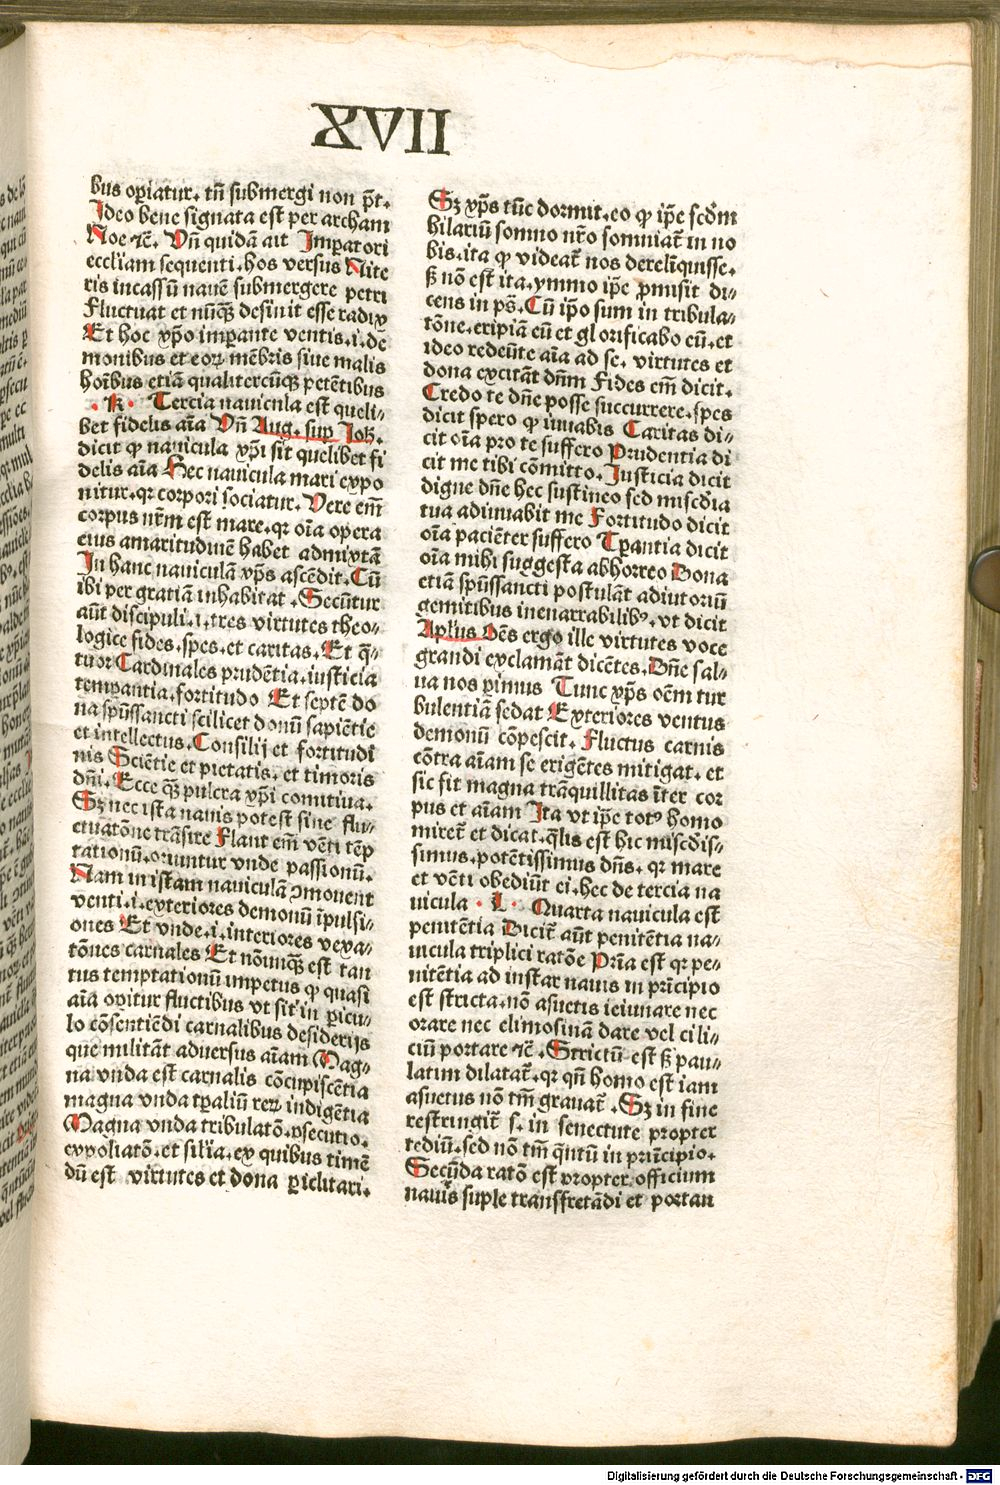 XVII
bus oꝑiatur. tñ submergi non pt̃.
Ideo bene signata est per archam
Noe ⁊c̃. Vñ quidã ait Imperatori
eccliam sequenti. hos versus Nite
ris incassũ nauẽ submergere petri
Fluctuat et nũqꝫ desinit esse radix
Et hoc xp̃o imꝑante ventis. i. de
monibus et eoꝝ mẽbris siue malis
hoĩbus etiã qualitercũqꝫ petẽtibus
. K . Tercia nauicula est queli-
bet fidelis aĩa Vñ Aug. sup Joh.
dicit ꝙ nauicula xp̃i sit quelibet fi
delis aĩa Hec nauicula mari expo
nitur. qꝛ corpori sociatur. Vere em̃
corpus nr̃m est mare. qꝛ oĩa opera
eius amaritudinẽ habet admixtã
In hanc nauiculã xp̃s ascẽdit. Cũ
ibi per gratiã inhabitat. Secũtur
aũt discipuli. i. tres virtutes theo-
logice fides. spes. et caritas. Et q̃-
tuor Cardinales prudẽtia. iusticia
temꝑantia. fortitudo Et septẽ do
na spũssancti scilicet donũ sapiẽtie
et intellectus. Consilij et fortitudi
nis Sciẽtie et pietatis. et timoris
dñi. Ecce qꝫ pulcra xp̃i comitiua.
Sꝫ nec ista nauis potest sine flu-
ctuatõne trãsire Flant em̃ vẽti tẽp
tationũ. oriuntur vnde passionũ.
Nam in istam nauiculã ꝯmouent
venti. i. exteriores demonũ ĩpulsi-
ones Et vnde. i. interiores vexa-
tõnes carnales Et nõunqꝫ est tan
tus temptationũ impetus ꝙ quasi
aĩa oꝑitur fluctibus vt sit in ꝑicu-
lo cõsentiẽdi carnalibus desiderijs
que militãt aduersus aĩam Mag-
na vnda est carnalis cõcupiscẽtia
magna vnda tꝑaliũ reꝝ indigẽtia
Magna vnda tribulatõ. ꝑsecutio.
expoliatõ. et sil̃ia. ex quibus timẽ
dũ est virtutes et dona ꝑiclitari.
Sꝫ xp̃s tũc dormit. eo ꝙ ip̃e scd̃m
hilariũ somno nr̃o somniat̃ in no
bis. ita ꝙ videat̃ nos dereliquisse.
sꝫ nõ est ita. ymmo ip̃e ꝓmisit di-
cens in ps̃. Cũ ip̃o sum in tribula-
tõne. eripiã eũ et glorificabo eũ. et
ideo redeũte aĩa ad se. virtutes et
dona excitãt dñm Fides em̃ dicit.
Credo te dñe posse succurrere. spes
dicit spero ꝙ iuuabis Caritas di-
cit oĩa pro te suffero Prudentia di
cit me tibi cõmitto. Iusticia dicit
digne dñe hec sustineo sed misc̃dia
tua adiuuabit me Fortitudo dicit
oĩa paciẽter suffero Tꝑantia dicit
oĩa mihi suggesta abhorreo Dona
etiã spũssancti postulãt adiutoriũ
gemitibus inenarrabilibꝰ. vt dicit
Apl̃us Oẽs ergo ille virtutes voce
grandi exclamãt dicẽtes. Dñe sal-
ua nos ꝑimus Tunc xp̃s oẽm tur
bulentiã sedat Exteriores ventus
demonũ cõpescit. Fluctus carnis
cõtra aĩam se erigẽtes mitigat. et
sic fit magna trãquillitas ĩter cor
pus et aĩam Ita vt ip̃e totꝰ homo
miret̃ et dicat. q̃lis est hic misc̃dis-
simus. potẽtissimus dñs. qꝛ mare
et vẽti obediũt ei. hec de tercia na
uicula . L . Quarta nauicula est
penitẽtia Dicit̃ aũt penitẽtia na-
uicula triplici ratõe Pr̃ia est qꝛ pe-
nitẽtia ad instar nauis in pr̃icipio
est stricta. nõ asuetis ieiunare nec
orare nec elimosinã dare vel cili-
ciũ portare ⁊c̃. Strictũ est sꝫ pau-
latim dilatat̃. qꝛ qñ homo est iam
asuetus nõ tm̃ grauat̃. Sꝫ in fine
restringit̃ s. in senectute propter
tediũ. sed nõ tm̃ q̃ntũ in pr̃icipio.
Secũda ratõ est propter officium
nauis suple transfretãdi et portan
Digitalisierung gefördert durch die Deutsche Forschungsgemeinschaft - DFG